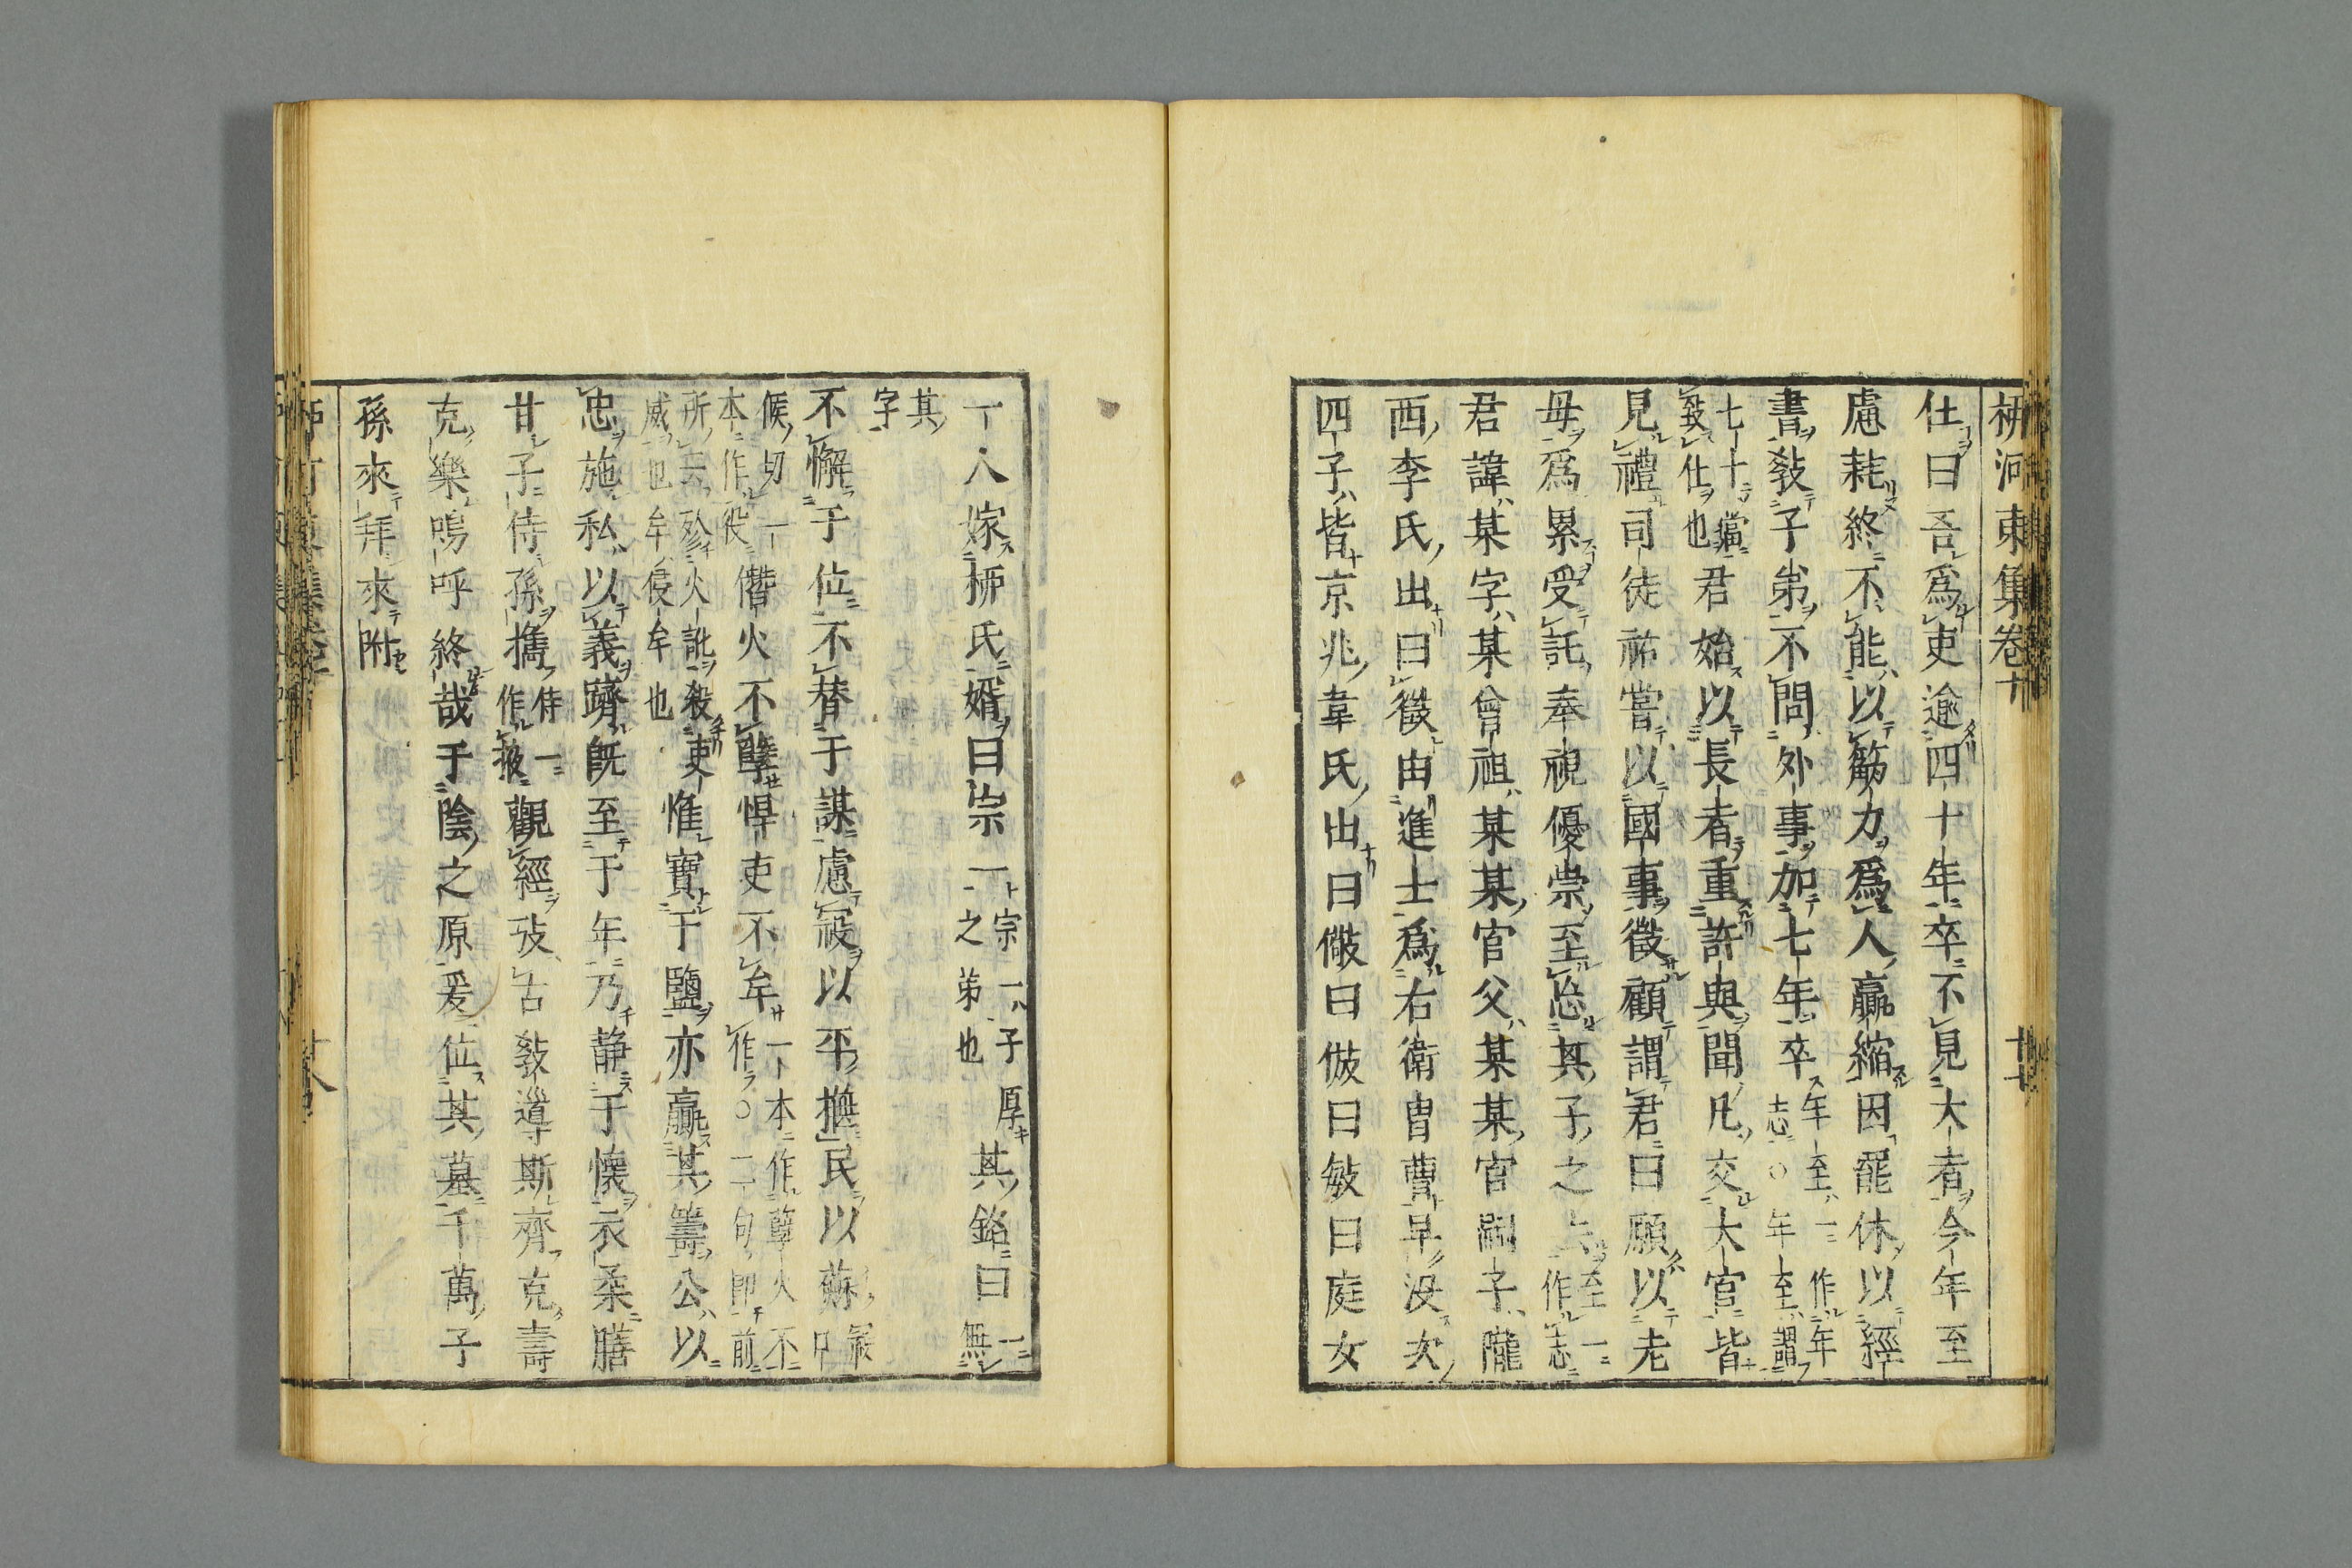 柳河東集卷十
仕曰吾爲吏逾四十年卒不見大者今年至
慮耗終不能以筋力爲人贏縮因罷休以經
書敎子弟不問外事加七年卒年至一作年志○年至謂
七十當致仕也君始以長者重許與聞凡交大官皆
見禮司徒祐嘗以國事徵顧謂君曰願以老
母爲累受託奉視優崇至忘其子之至一作志
君諱某字某曾祖某某官父某某官嗣子隴
西李氏出曰徵由進士爲右衛胄曹早没次
四子皆京兆韋氏出曰儆曰倣曰敏曰庭女
一人嫁柳氏婿曰宗一宗一子厚之弟也其銘曰一無
其字
不懈于位不替于謀慮寇以平撫民以蘇
候切一本作役僭火不孽悍吏不牟一本作孽火不作○二句即前
所云殄火訛殺吏威也牟侵牟也惟寶于鹽亦贏其籌公以
忠施私以義躋既至于年乃静于懐衣柔膳
甘子侍孫攜侍一作扳觀經攷古敎導斯齊克壽
克樂嗚呼終哉于陰之原爰位其墓千萬子
孫來拜來附